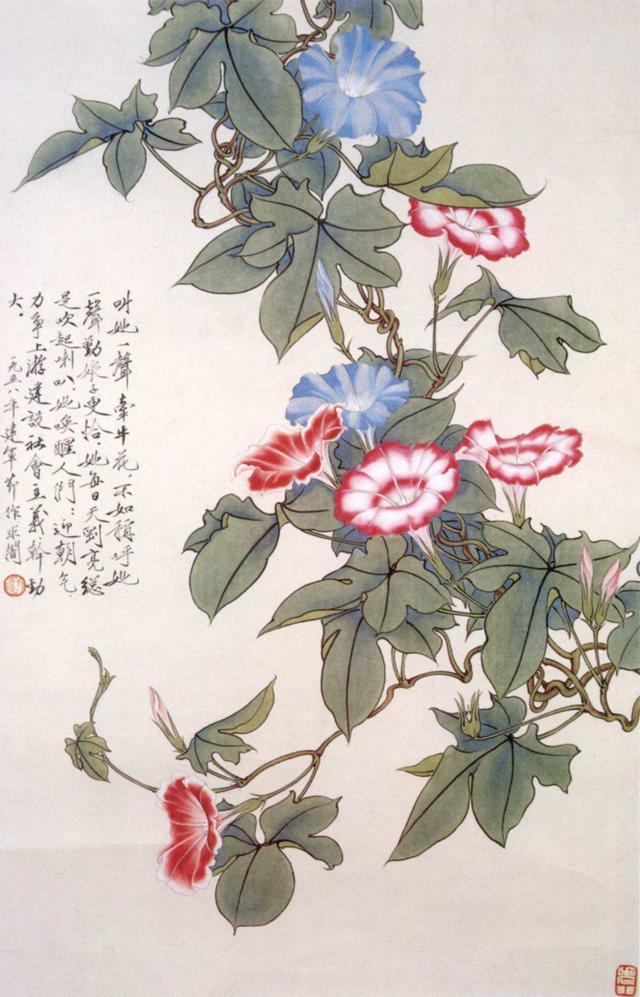 叫她一聲牽牛花，不如稱呼她
一聲勤娘子更恰，她每日天剛亮總
是吹起喇叭，她喚醒人們：迎朝气，
力爭上游建設社會主義幹勁
大。一九五八年建軍節作 非闇